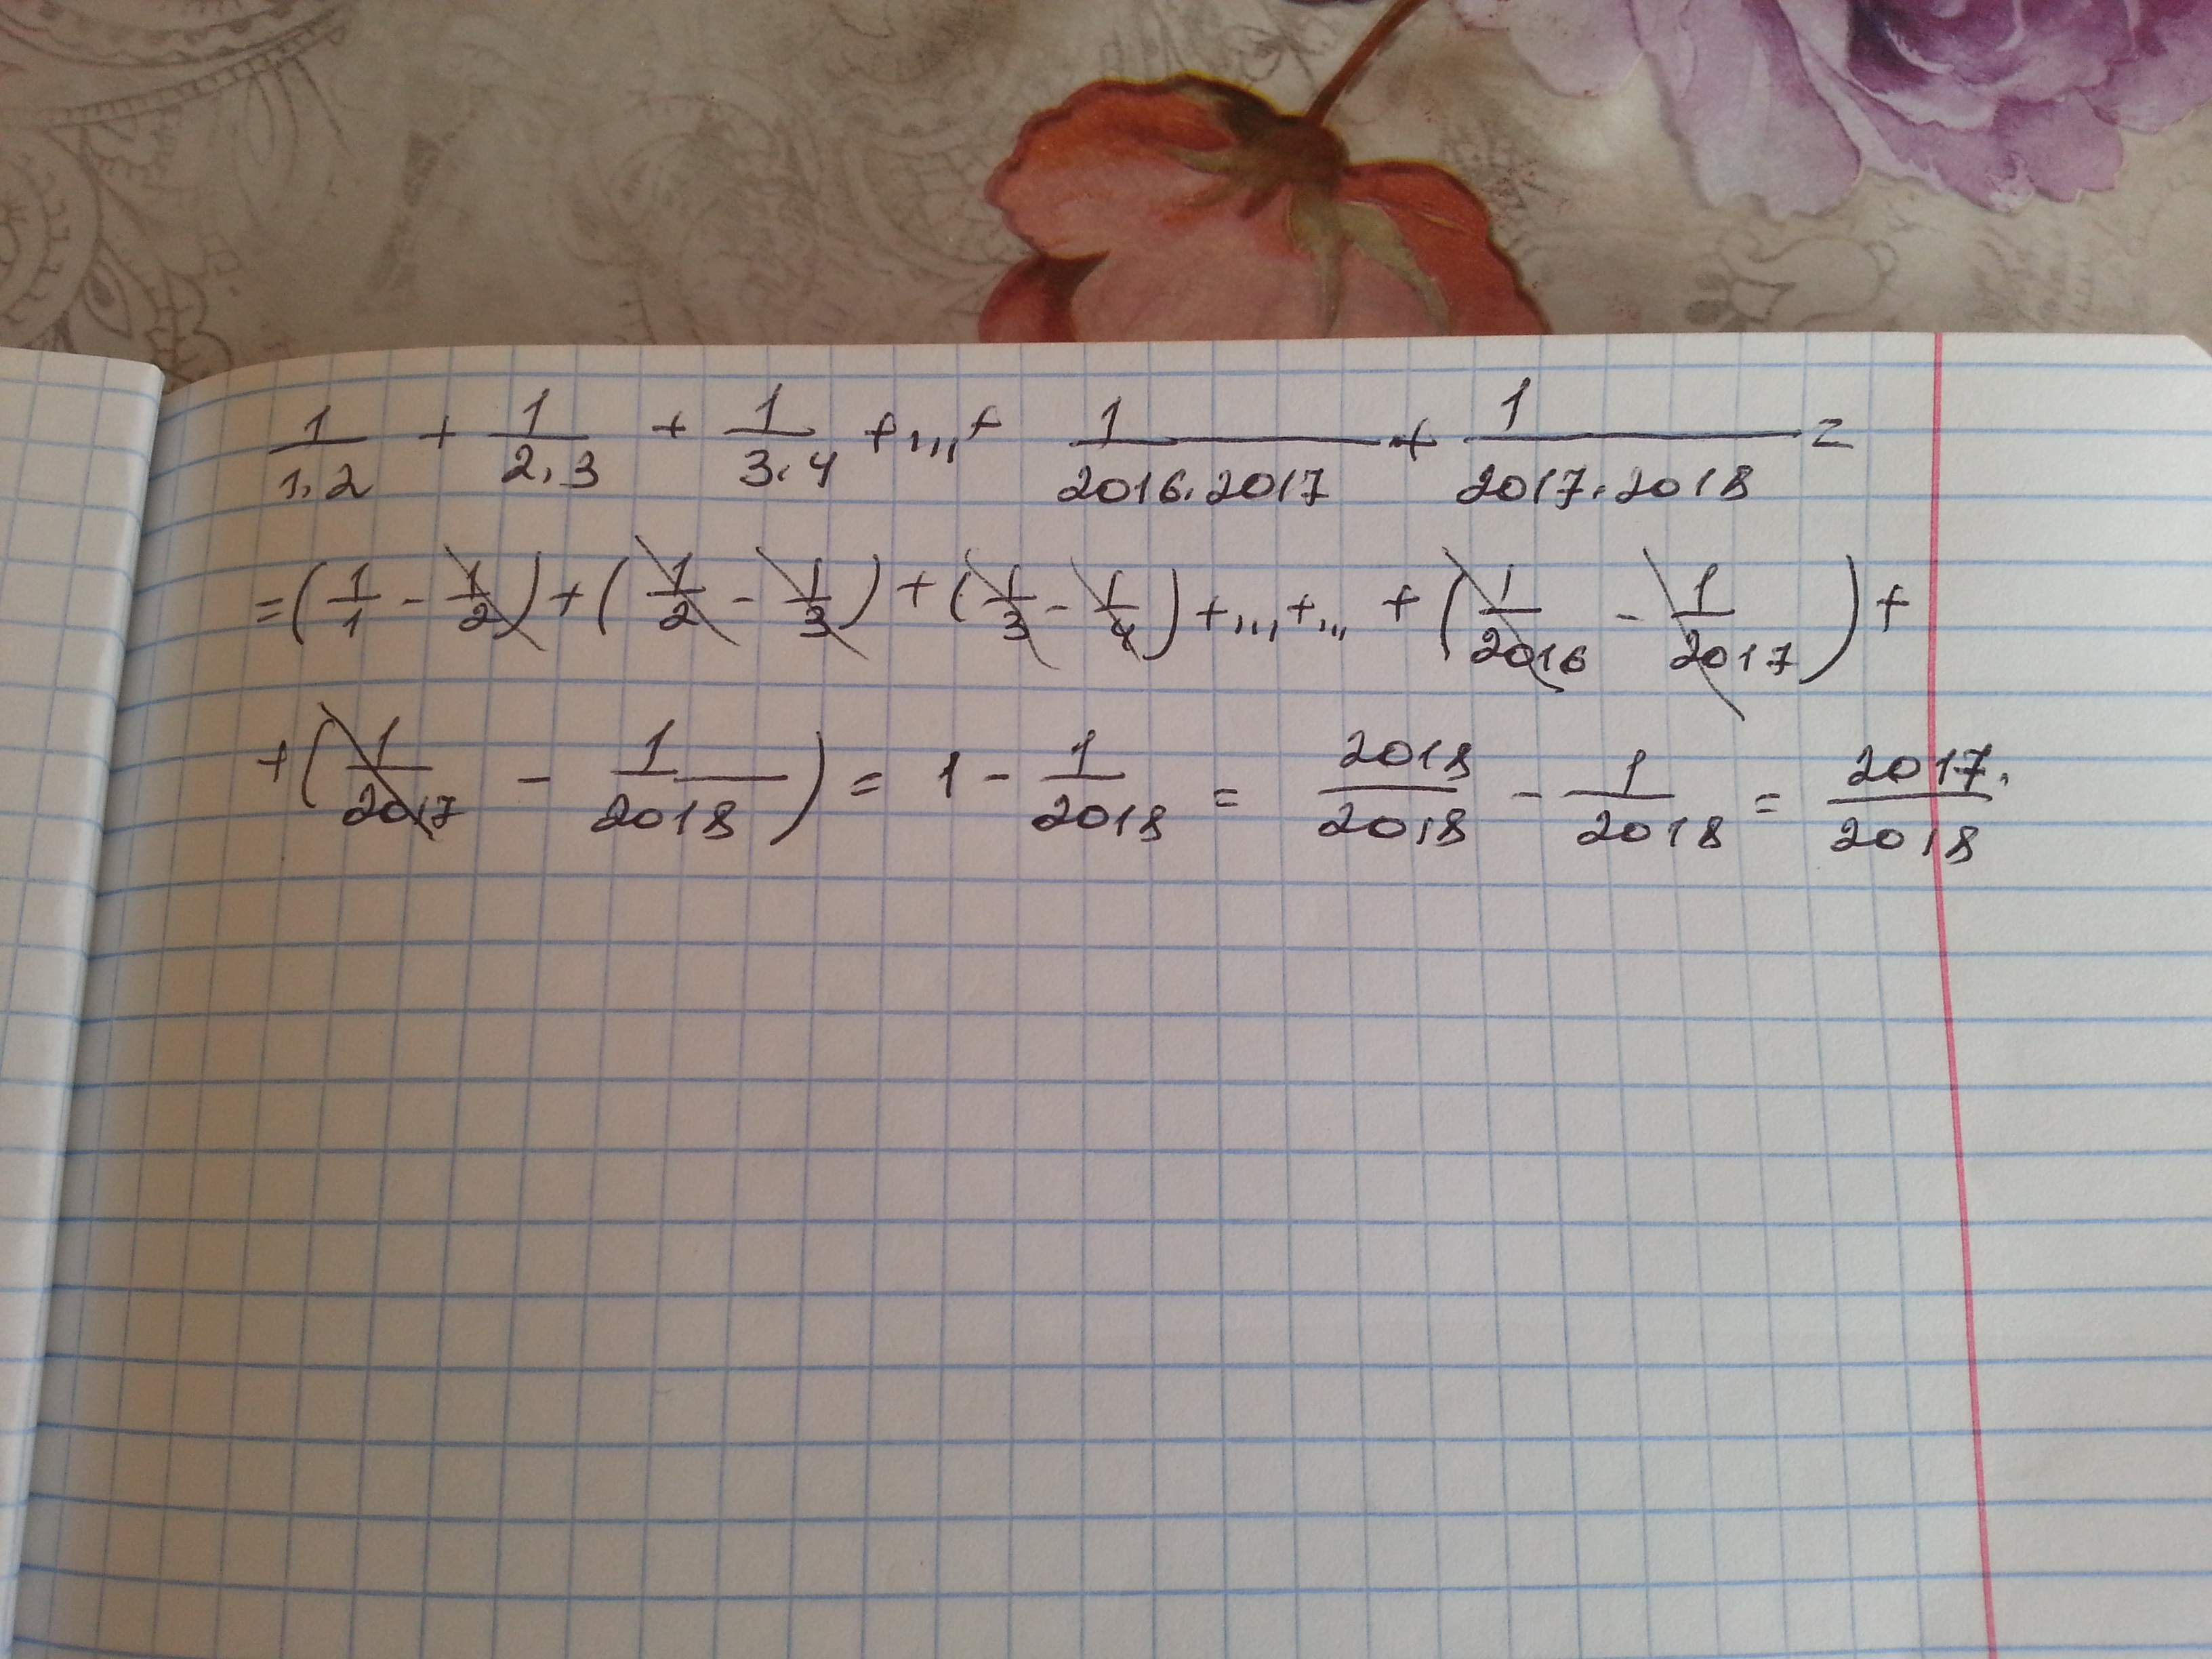 1/1.2 + 1/2.3 + 1/3.4 +...+ 1/2016.2017 + 1/2017.2018 =
=(1/1 - 1/2)+(1/2 - 1/3)+(1/3 - 1/4)+...+... +(1/2016 - 1/2017)+
+(1/2017 - 1/2018)= 1 - 1/2018 = 2018/2018 - 1/2018 = 2017/2018.